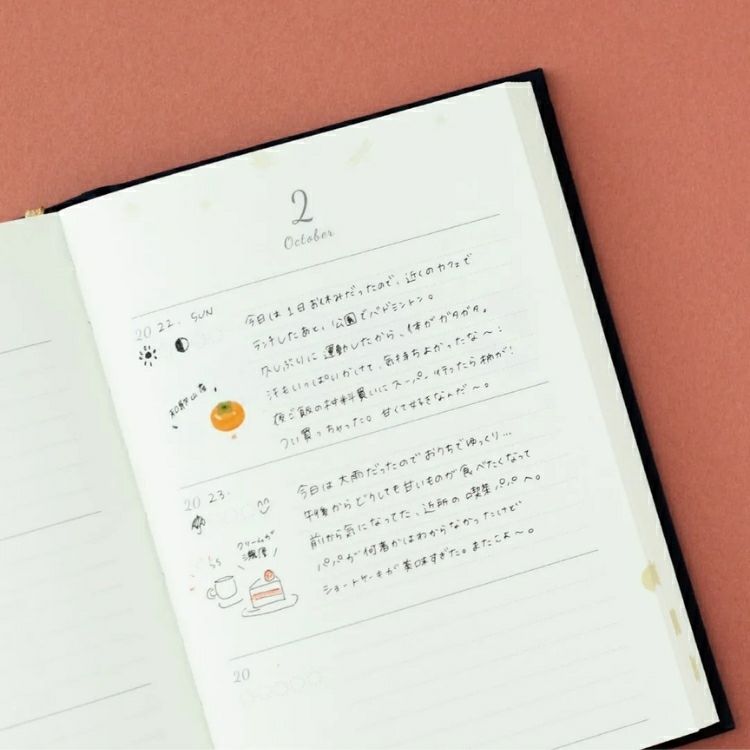 2
October
20 22. SUN
今日は1日お休みだったので、近くのカフェで
ランチしたあと、公園でバドミントン。
久しぶりに運動したから、体がガタガタ。
汗もいっぱいかけて、気持ちよかったな〜！
夜ご飯の材料買いにスーパー行ったら柿が！
つい買っちゃった。甘くて好きなんだ〜。
和歌山産
20 23.
今日は大雨だったのでおうちでゆっくり…
午後からどうしても甘いものが食べたくなって
前から気になってた、近所の喫茶パパへ。
パパが何者かはわからなかったけど
ショートケーキが美味すぎた。またこよ〜。
クリームが
濃厚
20